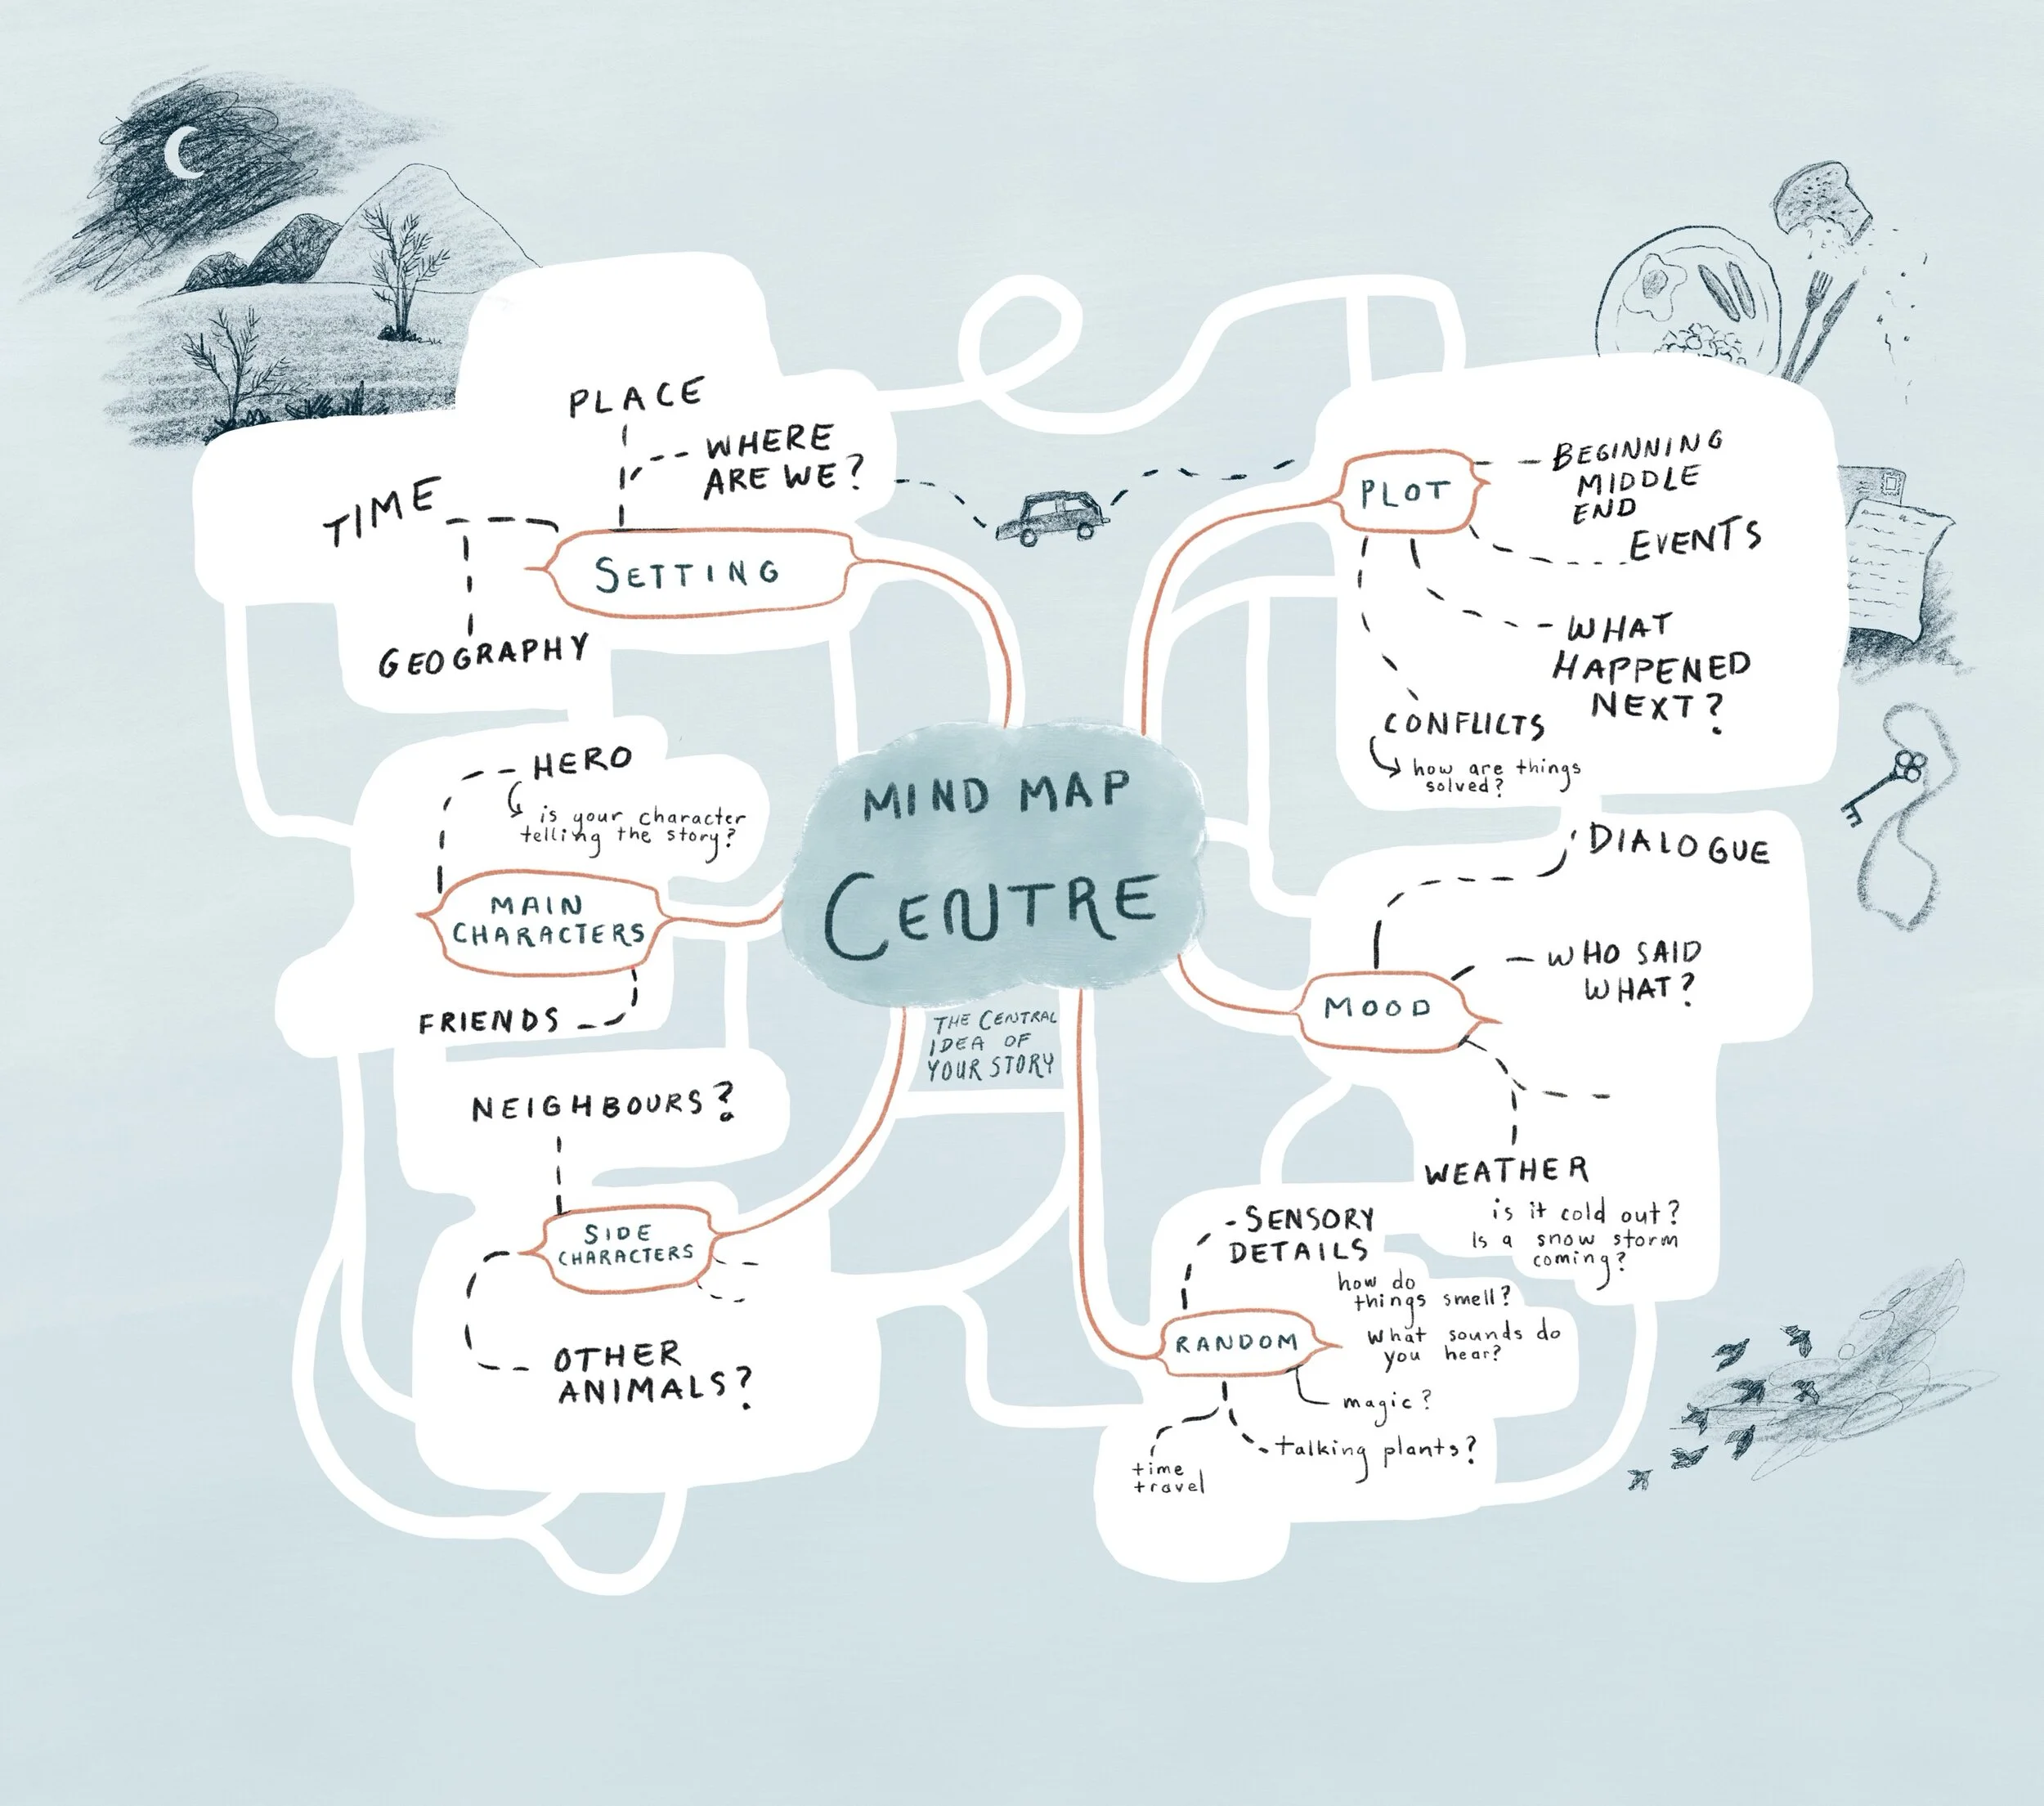 MIND MAP
CENTRE
THE CENTRAL
IDEA OF
YOUR STORY
SETTING
PLACE
WHERE
ARE WE?
TIME
GEOGRAPHY
MAIN
CHARACTERS
HERO
is your character
telling the story?
FRIENDS
SIDE
CHARACTERS
NEIGHBOURS?
OTHER
ANIMALS?
PLOT
BEGINNING
MIDDLE
END
EVENTS
WHAT
HAPPENED
NEXT?
CONFLICTS
how are things
solved?
MOOD
DIALOGUE
WHO SAID
WHAT?
WEATHER
is it cold out?
Is a snow storm
coming?
RANDOM
SENSORY
DETAILS
how do
things smell?
What sounds do
you hear?
magic?
talking plants?
time
travel